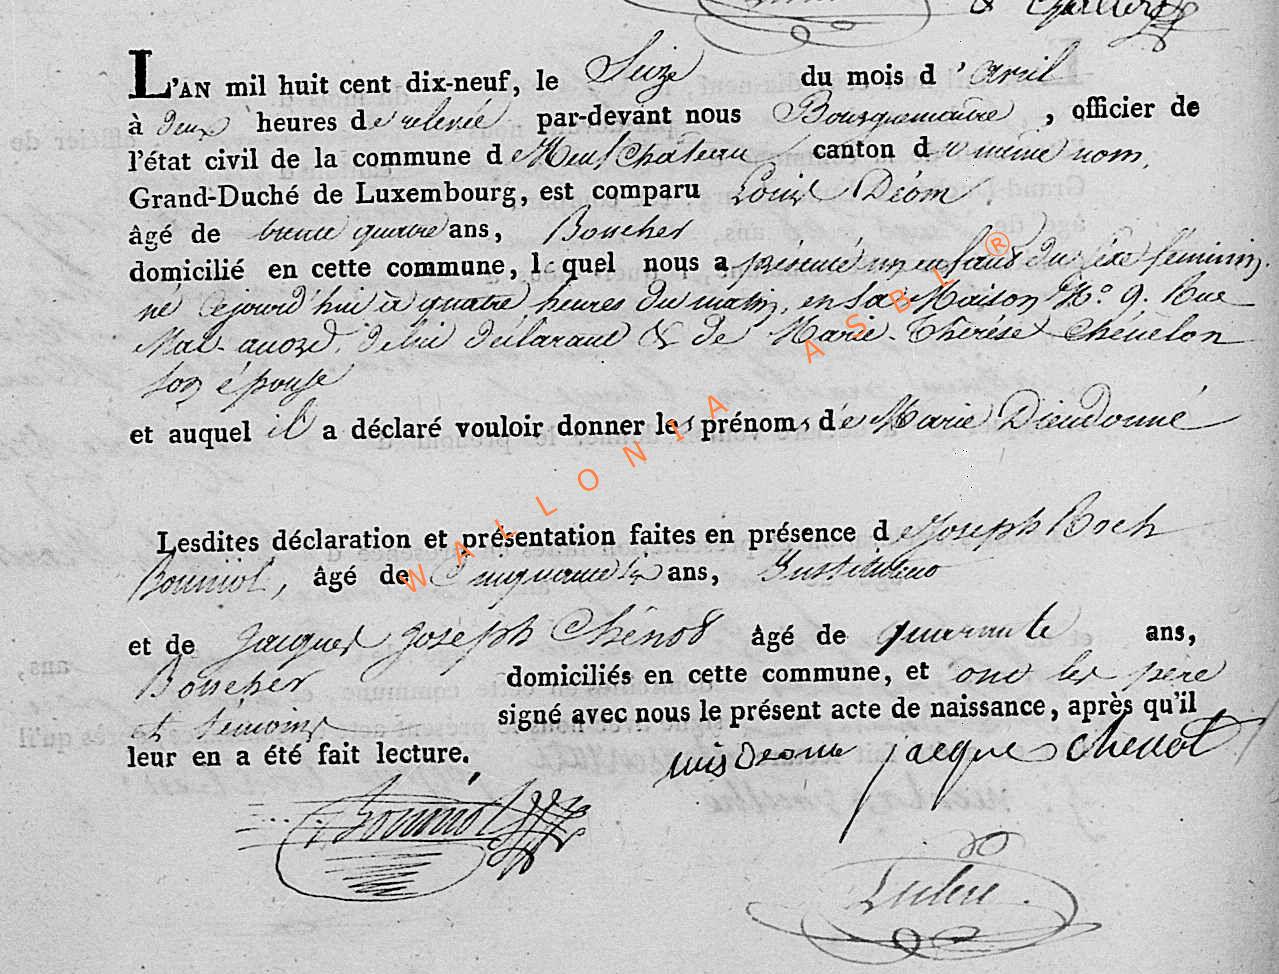 L'AN mil huit cent dix-neuf, le Seize du mois d'avril
à deux heures de relevée par-devant nous Bourguemaitre, officier de
l'état civil de la commune de Neufchâteau canton du même nom.
Grand-Duché de Luxembourg, est comparu Louis Déom
âgé de trente quatre ans, Boucher
domicilié en cette commune, lequel nous a présenté un enfant du sexe féminin
né cejourd'hui à quatre heures du matin, en sa Maison N.° 9. Rue
de lui déclarant & de Marie-Thérèse
son épouse
et auquel il a déclaré vouloir donner les prénoms de Marie Dieudonné
Lesdites déclaration et présentation faites en présence de Joseph Roch
Bonniol, âgé de ans, Instituteur
et de Jacques Joseph Chénot âgé de quarante ans,
Boucher domiciliés en cette commune, et ont les père
et témoins signé avec nous le présent acte de naissance, après qu'il
leur en a été fait lecture.
jacque chenot
Bonniol
WALLONIA ASBL ®